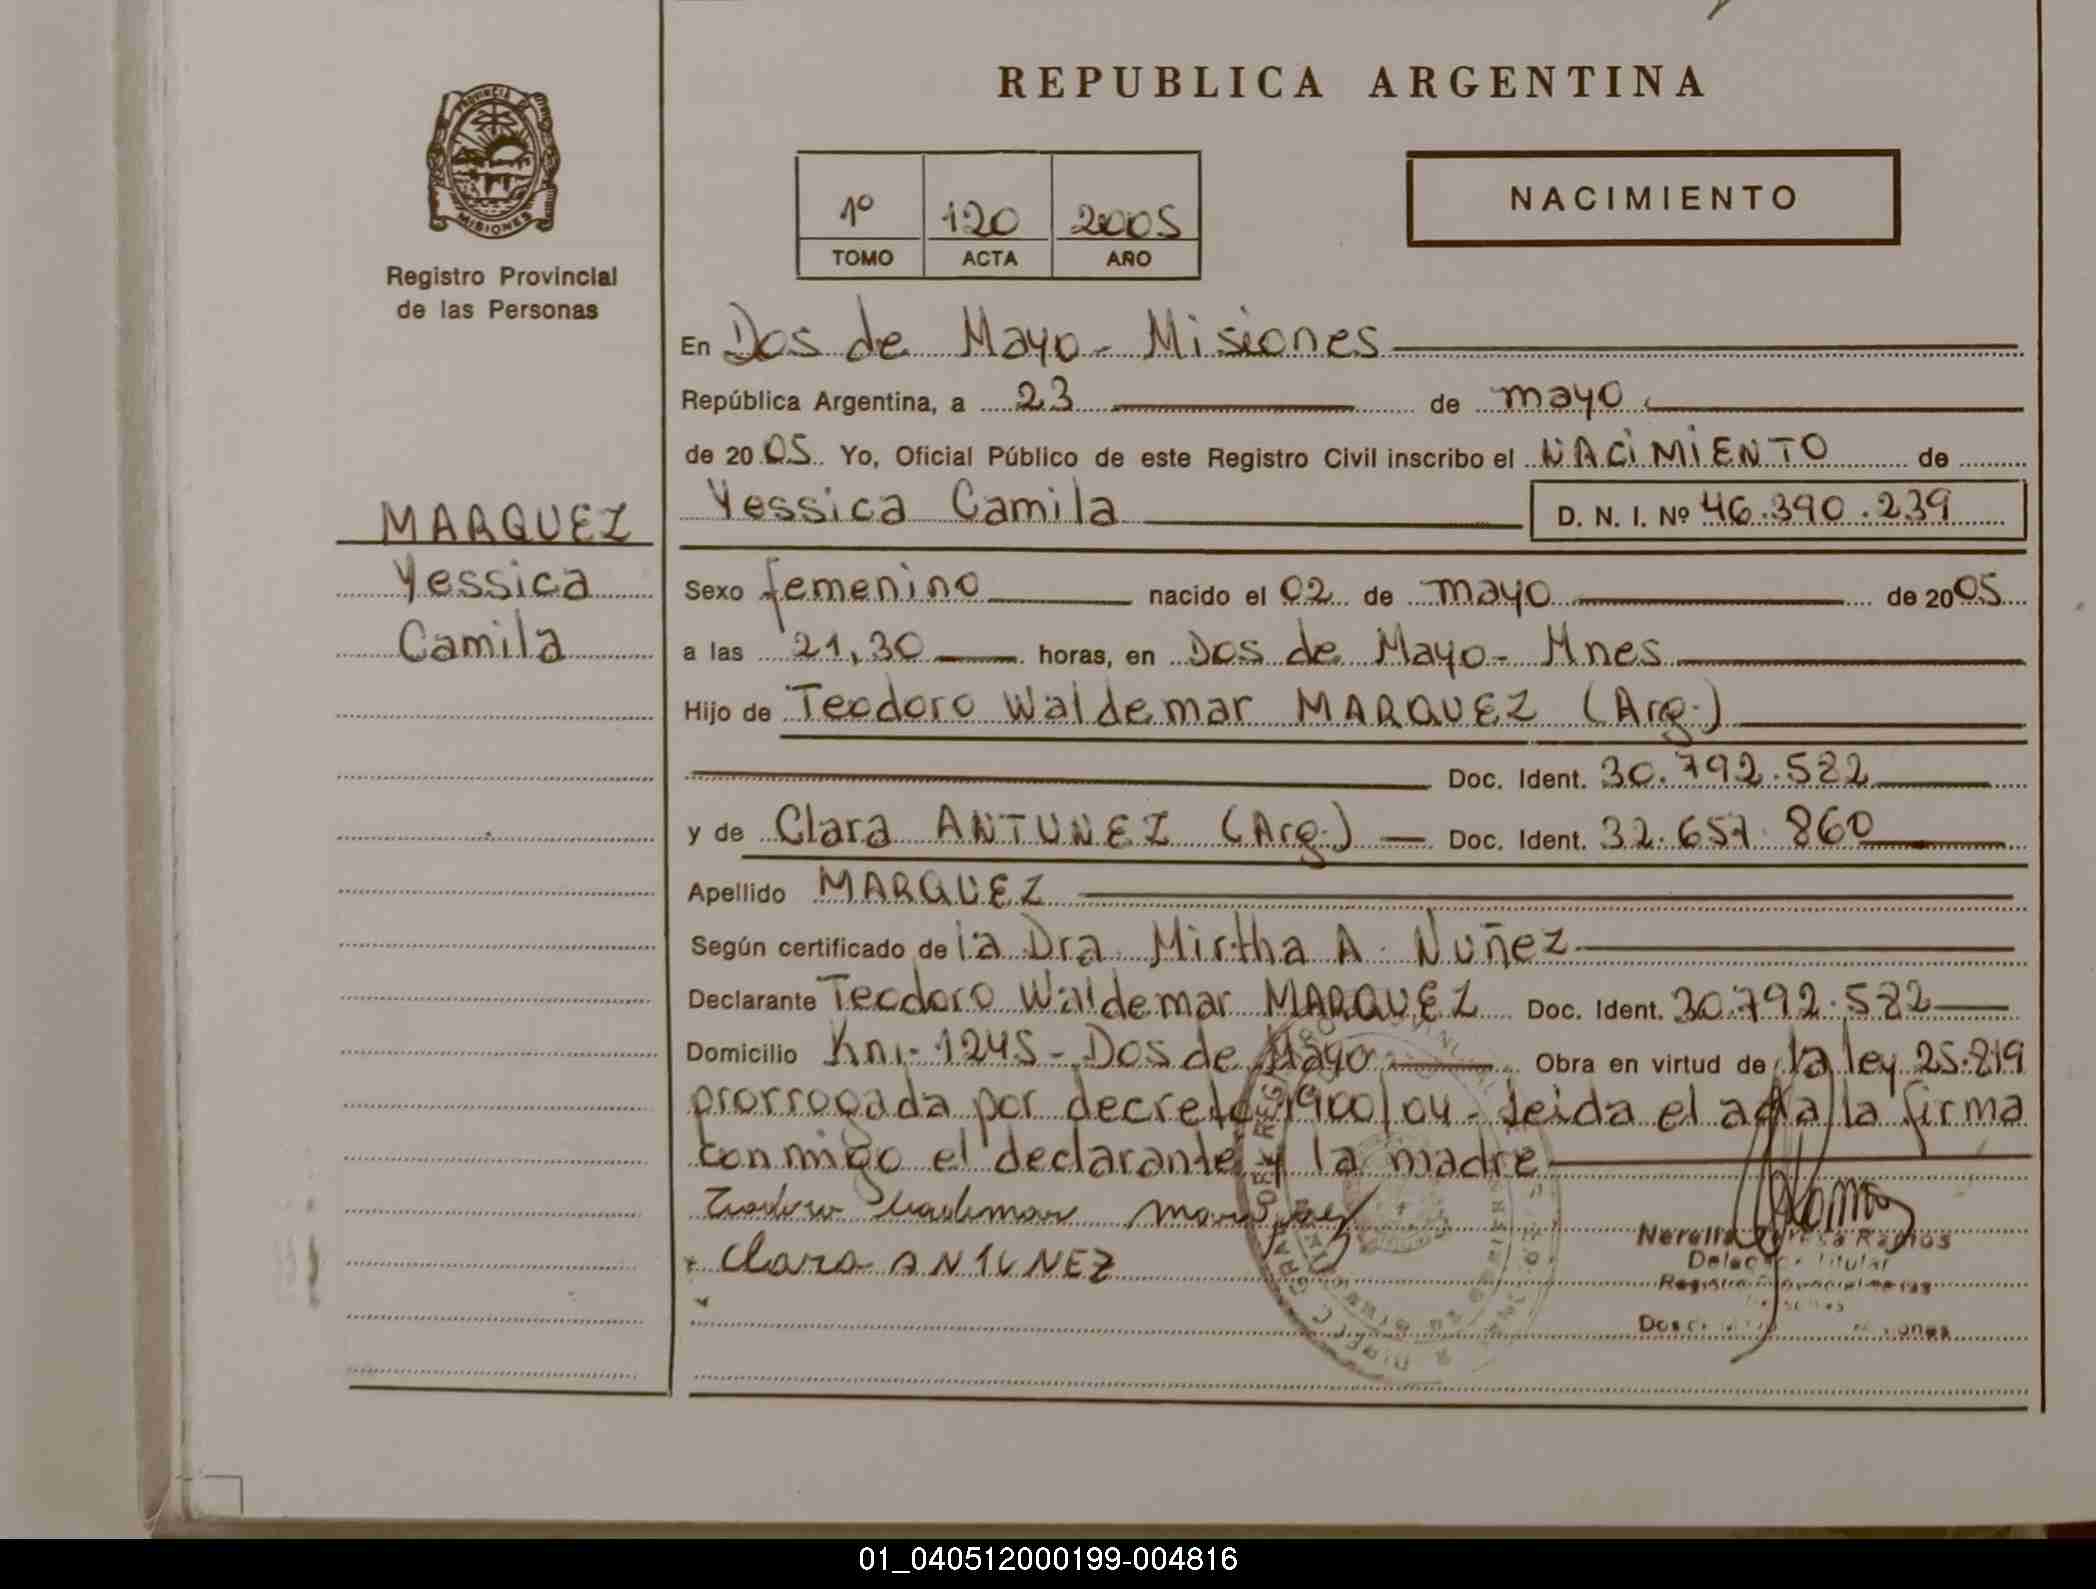 REPUBLICA ARGENTINA
PROVINCIA DE
MISIONES
Registro Provincial
de las Personas
1º 120 2005
TOMO ACTA AÑO
NACIMIENTO
En Dos de Mayo - Misiones
República Argentina, a 23 de mayo
de 2005 Yo, Oficial Público de este Registro Civil inscribo el NACIMIENTO de
Yessica Camila D. N. I. Nº 46.390.239
MARQUEZ
Yessica
Camila
Sexo femenino nacido el 02 de mayo de 2005
a las 21,30 horas, en Dos de Mayo - Mnes
Hijo de Teodoro Waldemar MARQUEZ (Arg.)
Doc. Ident. 30.792.582
y de Clara ANTUNEZ (Arg.) Doc. Ident. 32.657.860
Apellido MARQUEZ
Según certificado de la Dra Mirtha A. Nuñez
Declarante Teodoro Waldemar MARQUEZ Doc. Ident. 30.792.582
Domicilio Km.- 1245 - Dos de Mayo Obra en virtud de la ley 25.819
prorrogada por decreto 1900/04 - Leida el acta la firma
conmigo el declarante y la madre
Teodoro Waldemar Marquez
Clara ANTUNEZ
Ramos
Delegada Titular
01_040512000199-004816